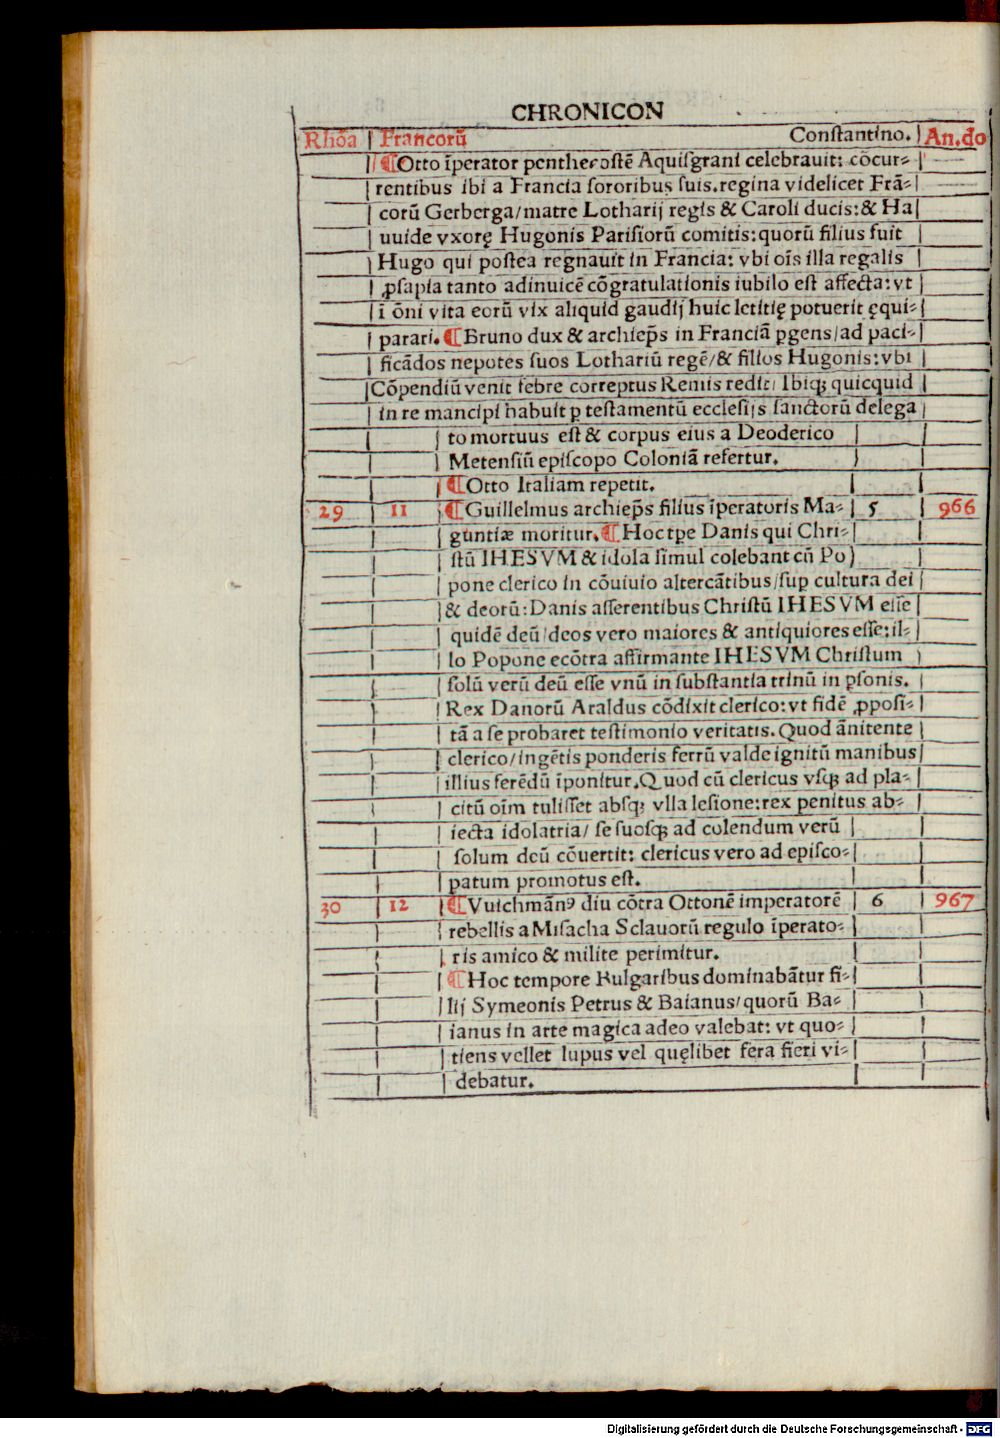 CHRONICON
Rhōa Francorū Constantino. An.do
¶Otto īperator penthecostē Aquisgrani celebrauit: cōcur-
rentibus ibi a Francia sororibus suis.regina videlicet Frā-
corū Gerberga/matre Lotharij regis & Caroli ducis:& Ha
uuide vxorę Hugonis Parisiorū comitis:quorū filius fuit
Hugo qui postea regnauit in Francia: vbi oīs illa regalis
ꝓsapia tanto adinuicē cōgratulationis iubilo est affecta:vt
ī ōni vita eorū vix aliquid gaudij huic letitię potuerit ęqui-
parari.¶Bruno dux & archiep̄s in Franciā ꝑgens/ad paci-
ficādos nepotes suos Lothariū regē/& filios Hugonis:vbi
Cōpendiū venit febre correptus Remis redit: Ibiqꝫ quicquid
in re mancipi habuit ꝑ testamentū ecclesijs sanctorū delega
to mortuus est & corpus eius a Deoderico
Metensiū episcopo Coloniā refertur.
¶Otto Italiam repetit.
29 11 ¶Guillelmus archiep̄s filius īperatoris Ma- 5 966
guntiæ moritur.¶Hoc tp̄e Danis qui Chri-
stū IHESVM & idola simul colebant cū Po
pone clerico in cōuiuio altercātibus/sup cultura dei
& deorū:Danis asserentibus Christū IHESVM esse
quidē deū/deos vero maiores & antiquiores esse:il-
lo Popone ecōtra affirmante IHESVM Christum
solū verū deū esse vnū in substantia trinū in ꝑsonis.
Rex Danorū Araldus cōdixit clerico:vt fidē ꝓposi-
tā a se probaret testimonio veritatis.Quod ānitente
clerico/ingētis ponderis ferrū valde ignitū manibus
illius ferēdū īponitur.Quod cū clericus vsqꝫ ad pla-
citū oīm tulisset absqꝫ vlla lesione:rex penitus ab-
iecta idolatria/ se suosqꝫ ad colendum verū
solum deū cōuertit: clericus vero ad episco-
patum promotus est.
30 12 ¶Vuichmānꝰ diu cōtra Ottonē imperatorē 6 967
rebellis a Misacha Sclauorū regulo īperato-
ris amico & milite perimitur.
¶Hoc tempore Bulgaribus dominabātur fi-
lij Symeonis Petrus & Baianus/quorū Ba-
ianus in arte magica adeo valebat: vt quo-
tiens vellet lupus vel quęlibet fera fieri vi-
debatur.
Digitalisierung gefördert durch die Deutsche Forschungsgemeinschaft - DFG